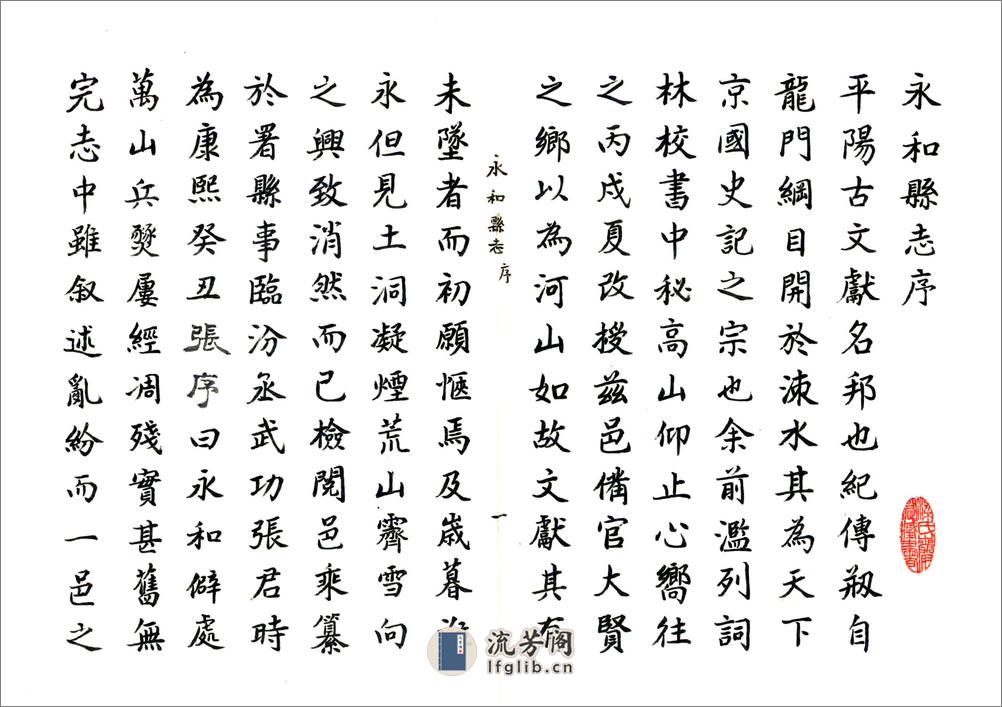 永和縣志序
平陽古文獻名邦也紀傳剏自
龍門綱目開於涑水其為天下
京國史記之宗也余前濫列詞
林校書中秘高山仰止心嚮往
之丙戍夏改授兹邑僃官大賢
之鄉以為河山如故文獻其有
永和縣志 序
一
未墜者而初願愜焉及嵗暮
永但見土洞凝煙荒山霽雪向
之興致消然而已檢閱邑乘纂
於署縣事臨汾丞武功張君時
為康熙癸丑張序曰永和僻處
萬山兵燹屢經凋殘實甚舊無
完志中雖叙述亂紛而一邑之
流芳阁
lfglib.cn